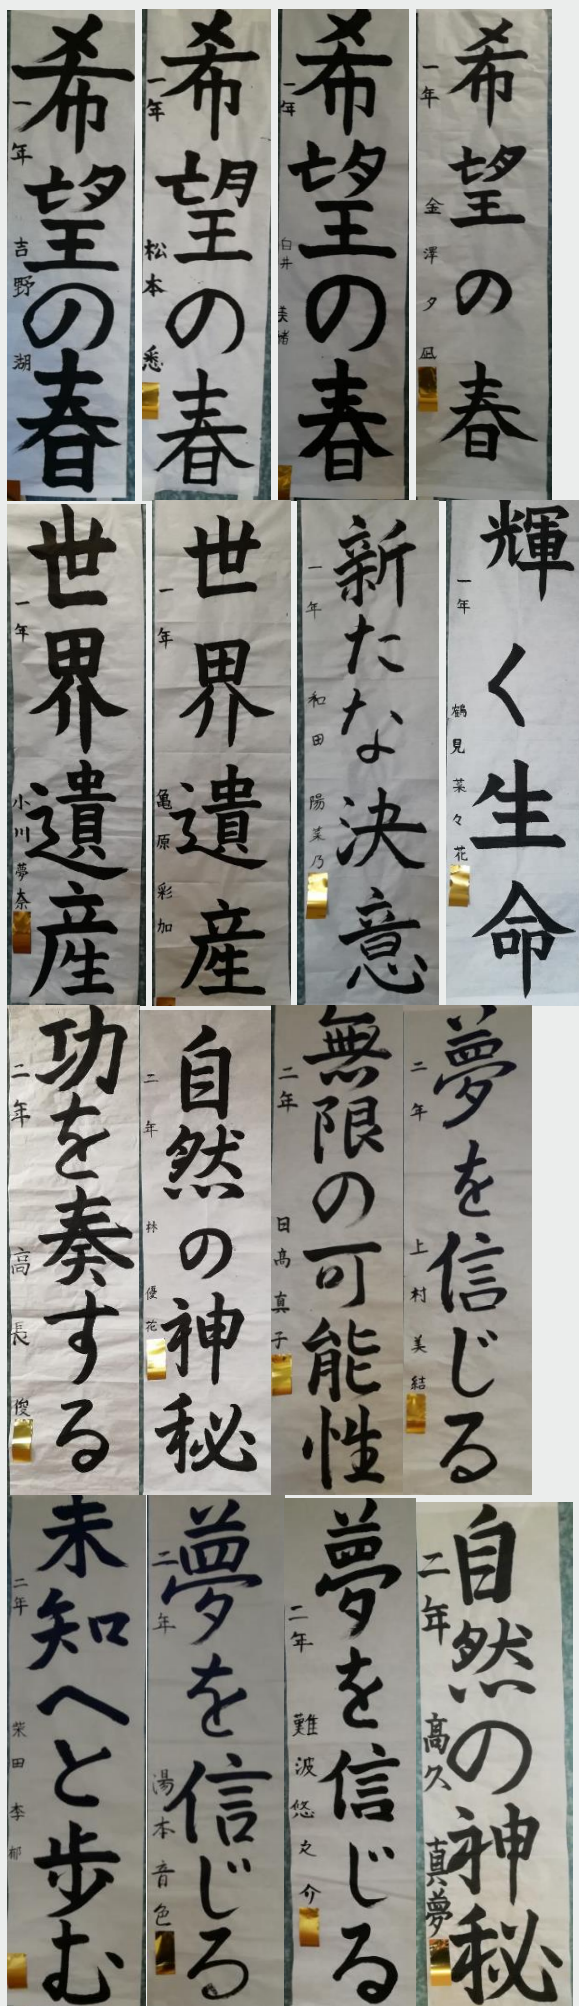 希望の春
一年 吉野 湖
希望の春
一年 松本 悉
希望の春
一年 白井 美緒
希望の春
一年 金澤 夕凪
世界遺産
一年 小川 夢奈
世界遺産
一年 亀原 彩加
新たな決意
一年 和田 陽菜乃
輝く生命
一年 鶴見 菜々花
功を奏する
二年 高長 俊
自然の神秘
二年 林 優花
無限の可能性
二年 日高 真子
夢を信じる
二年 上村 美結
未知へと歩む
二年 柴田 李郁
夢を信じる
二年 湯本 音色
夢を信じる
二年 難波 悠之介
自然の神秘
二年 高久 真夢